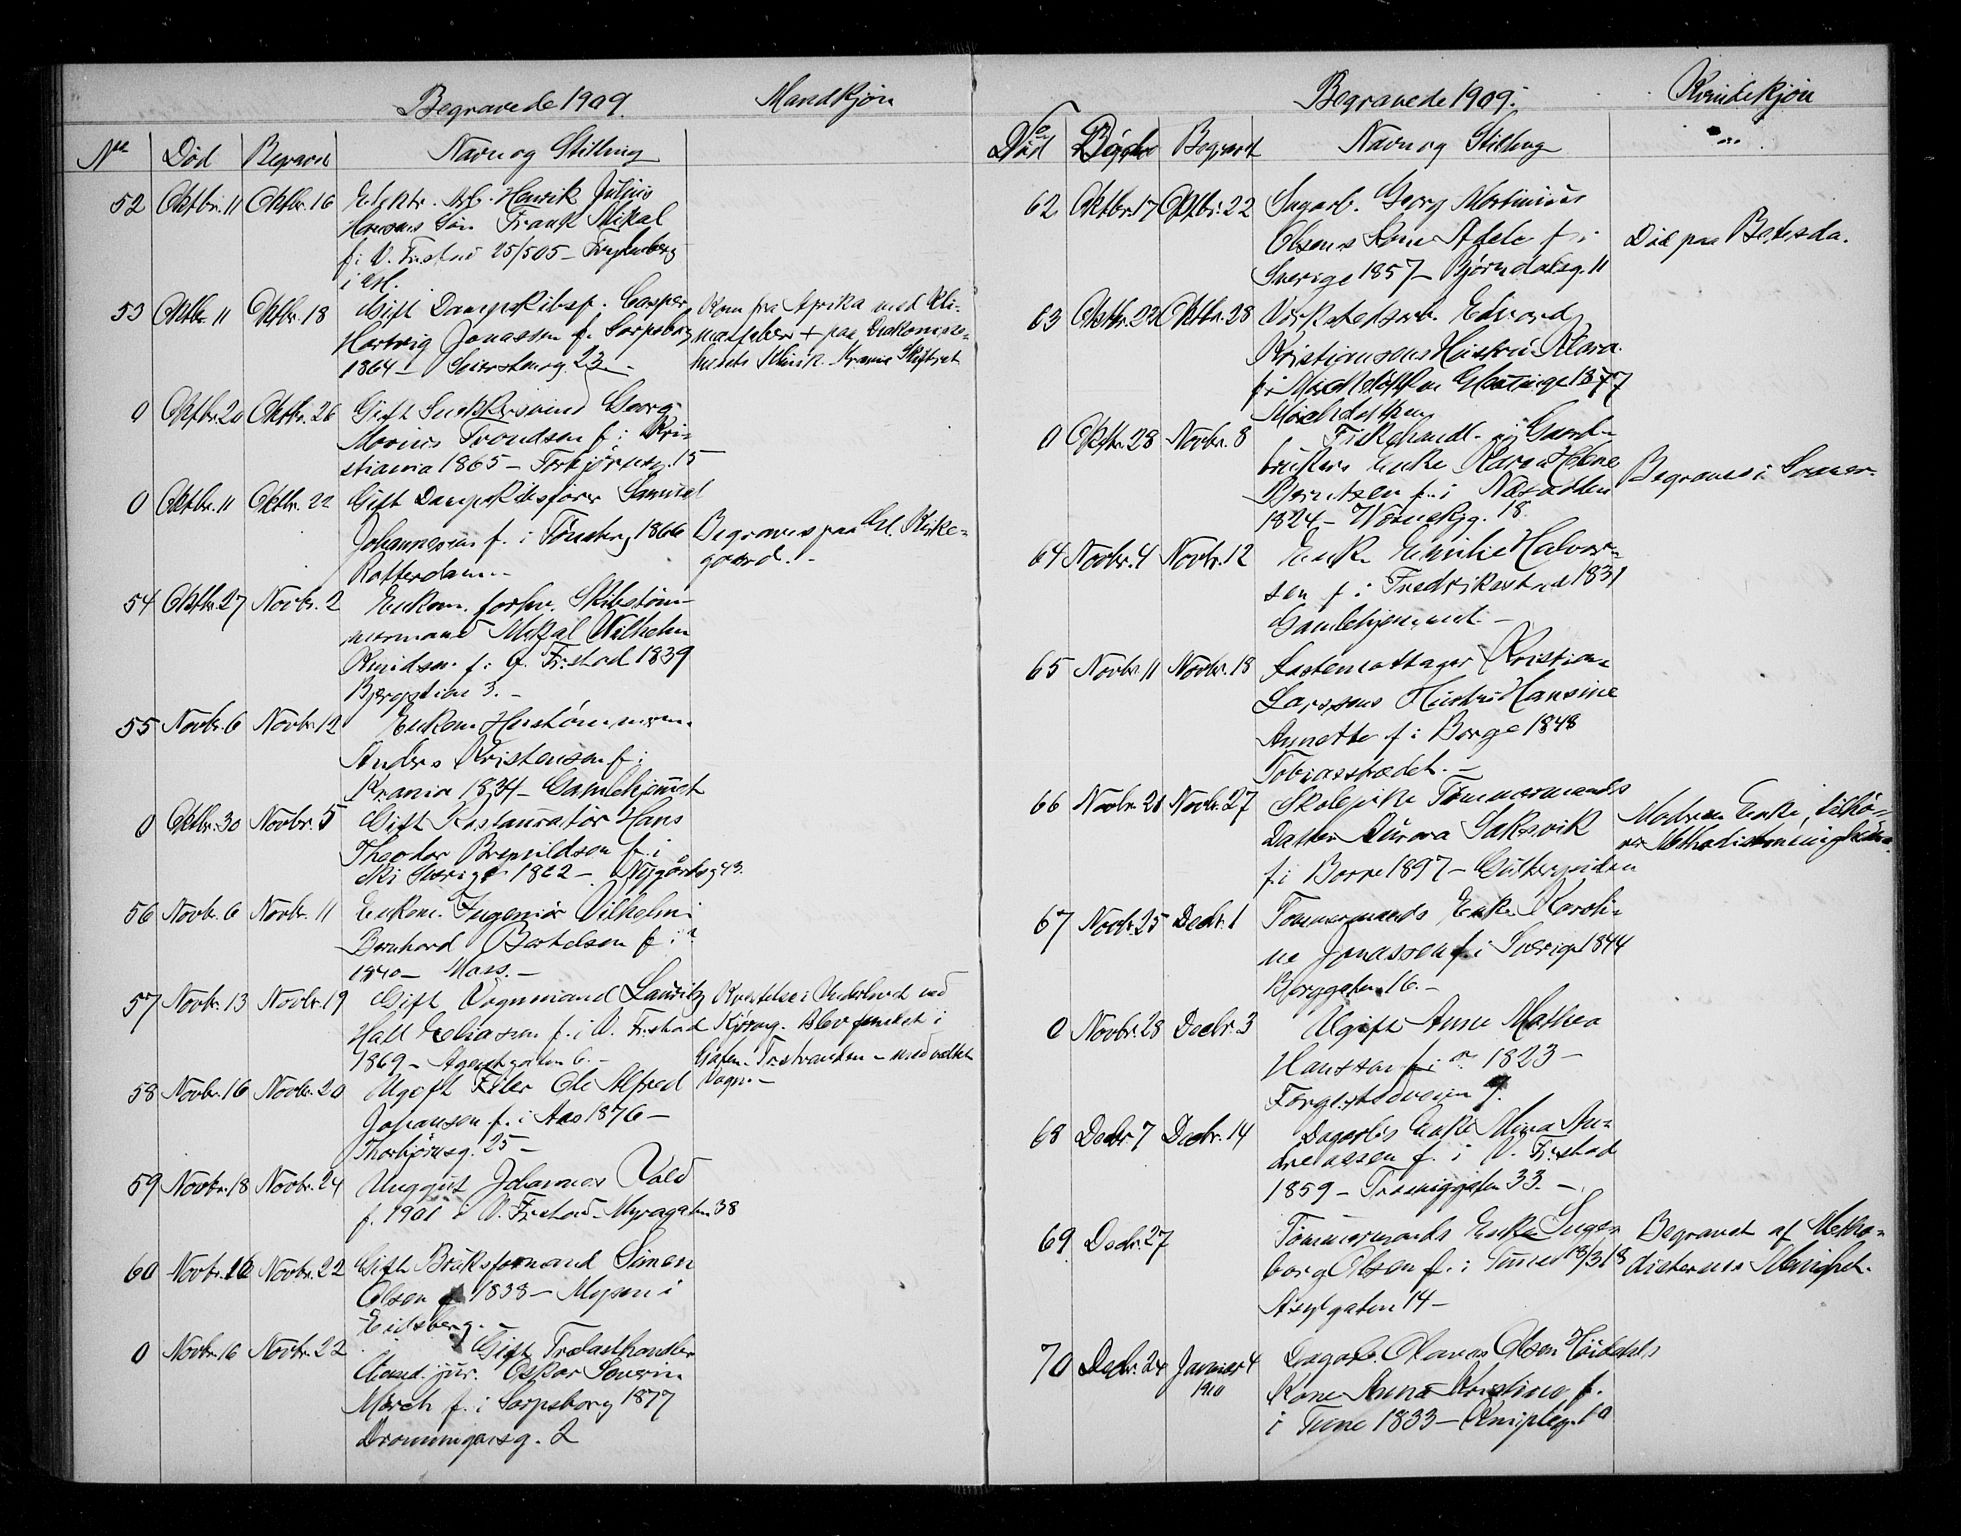 Begravede 1909. Mandkjøn
No Død Begravet Navn og Stilling
52 Oktbr. 11 Oktbr. 16 Elektr. Arb. Henrik Julius
Hansens Søn Frank Mikal
f. i V. Fr.stad 25/5 05 –
53 Oktbr. 11 Oktbr. 18 Gift Dampskibsf. Casper
Hartvig Jonassen f. Sarpsborg
1864 – 23 –
Kom fra Afrika med Kli-
mafeber + paa Diakonisse-
husets Klinik. Krania
0 Oktbr. 20 Oktbr. 26 Gift Georg
Marius Trondsen f. i Kri-
stiania 1865 – Torbjörnsg. 15 –
0 Oktbr. 11 Oktbr. 22 Gift Dampskibsfører Samuel
Johannesen f. i Tönsberg 1866
Rotterdam. –
Begraves paa Gl. Kirke-
gaard. –
54 Oktbr. 27 Novbr. 2 Enkem. forhv. Skibstøm-
mermand Mikal Wilhelm
Knudsen f. i G. Fr.stad 1839
3. –
55 Novbr. 6 Novbr. 12 Enkem. Hustømmerm.
Anders Kristensen f. i
Krania 1834 – Gamlehjemmet
0 Oktbr. 30 Novbr. 5 Gift Restauratør Hans
Theodor f. i
Sverige 1862 – Nygårdsg 43.
56 Novbr. 6 Novbr. 11 Enkem. Ingeniør Vilhelm
Bernhard Bertelsen f. i
1840 – Moss. –
57 Novbr. 13 Novbr. 19 Gift Vognmand Lauritz
Hall Eliassen f. i V. Fr.stad
1869 – Agentgaten 6. –
Kvælelse i Underlivet ved
Kjøring. Blev fundet i
Gaten. – med væltet
Vogn. –
58 Novbr. 16 Novbr. 20 Ugift Ole Alfred
Johansen f. i Aas 1876 –
Thorbjörnsg. 25 –
59 Novbr. 18 Novbr. 24 Unggut Johannes Vold
f. 1901 i V. Fr.stad. Myragaten 38
60 Novbr. 16 Novbr. 22 Gift Bruksformand Simen
Olsen f. 1838 – Mysen i
Eidsberg. –
0 Novbr. 16 Novbr. 22 Gift Trælasthandler
Cand. jur. Oskar Severin
Mørch f. i Sarpsborg 1877
Dronningensg. 2
Begravede 1909. Kvindekjøn
No
Død Begravet Navn og Stilling
62 Oktbr. 17 Oktbr. 22 Sagarb. Georg Martinius
Olsens Kone Adele f. i
Sverige 1857 – Bjørndalsg. 11
Død paa Betesda.
63 Oktbr. 22 Oktbr. 28 Værkstedsarb. Edvard
Kristiansens Hustru Klara
f. i Glemminge 1877
0 Oktbr. 28 Novbr. 8 Fiskehandl. og Gaard-
brukers Enke Maren Helene
Berntsen f. i Næsodden
1824 – 18.
Begraves i
64 Novbr. 4 Novbr. 12 Enke Emilie Halvor-
sen f. i Fredriksstad 1831
Gamlehjemmet. –
65 Novbr. 11 Novbr. 18 Lastemottager Kristian
Larssens Hustru Hansine
Annette f. i Borge 1848
Tobiasstrædet. –
66 Novbr. 21 Novbr. 27 Skolepike Tømmermands
Datter Aurora Saksvik
f. i Borre 1897 –
Modren Enke, tilhö-
rer Methodistmenigheden.
67 Novbr. 25 Decbr. 1 Tømmermands Enke Karoli-
ne Jonassen f. i Sverige 1844
Berggaten 16. –
0 Novbr. 28 Decbr. 3 Ugift Anne Mathea
Hanssen f. i 1823 –
Færgestedveien 9.
68 Decbr. 7 Decbr. 14 Dagarb. Enke Mina An-
dreassen f. i V. Fr.stad
1859 – 33. –
69 Decbr. 27 Tømmermands Enke Inge-
borg Olsen f. i Tune 18/3 18
Asylgaten 14 –
Begravet af Metho-
disternes Menighet.
70 Decbr. 24 Januar 4
1910
Dagarb. Olaves Olsen Höidahls
Kone Anna Kristine f.
i Tune 1833 – 10